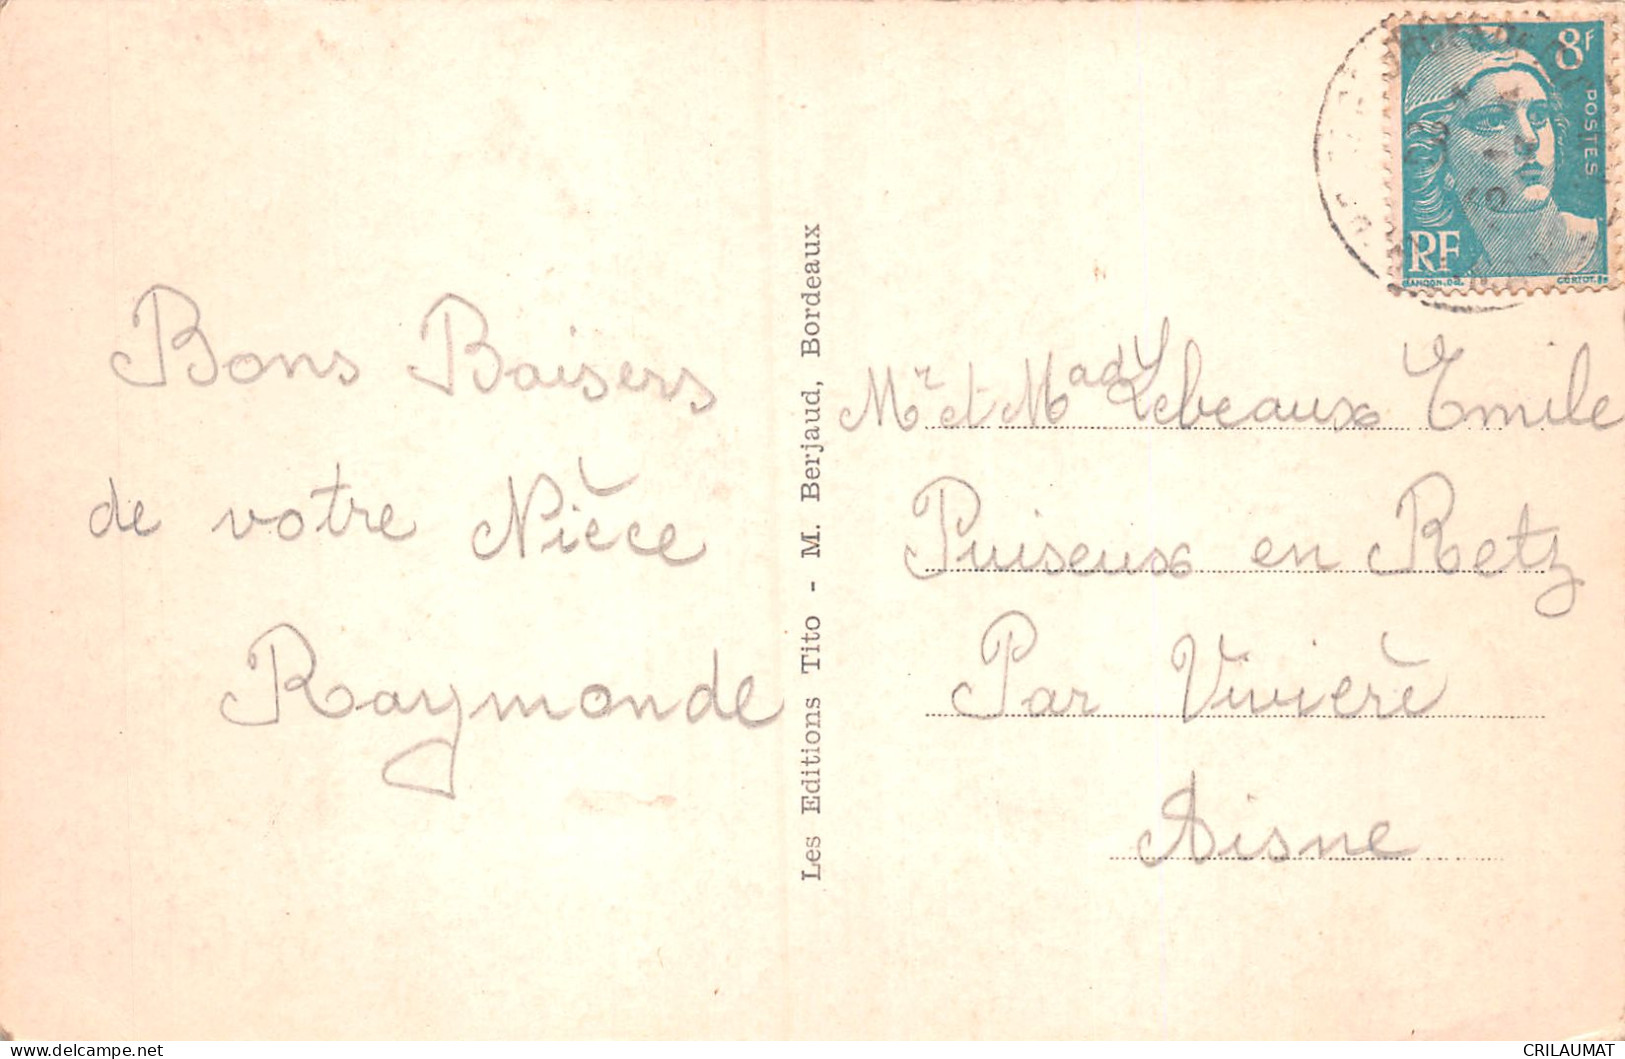 Bons Baisers
de votre Nièce
Raymonde
Les Editions Tito - M. Berjaud, Bordeaux
8F
POSTES
RF
GANDON.DEL.
CORTOT.SC
Mr et Mad Lebeaux Emile
Puiseux en Retz
Par Vivierè
Aisne
CRILAUMAT